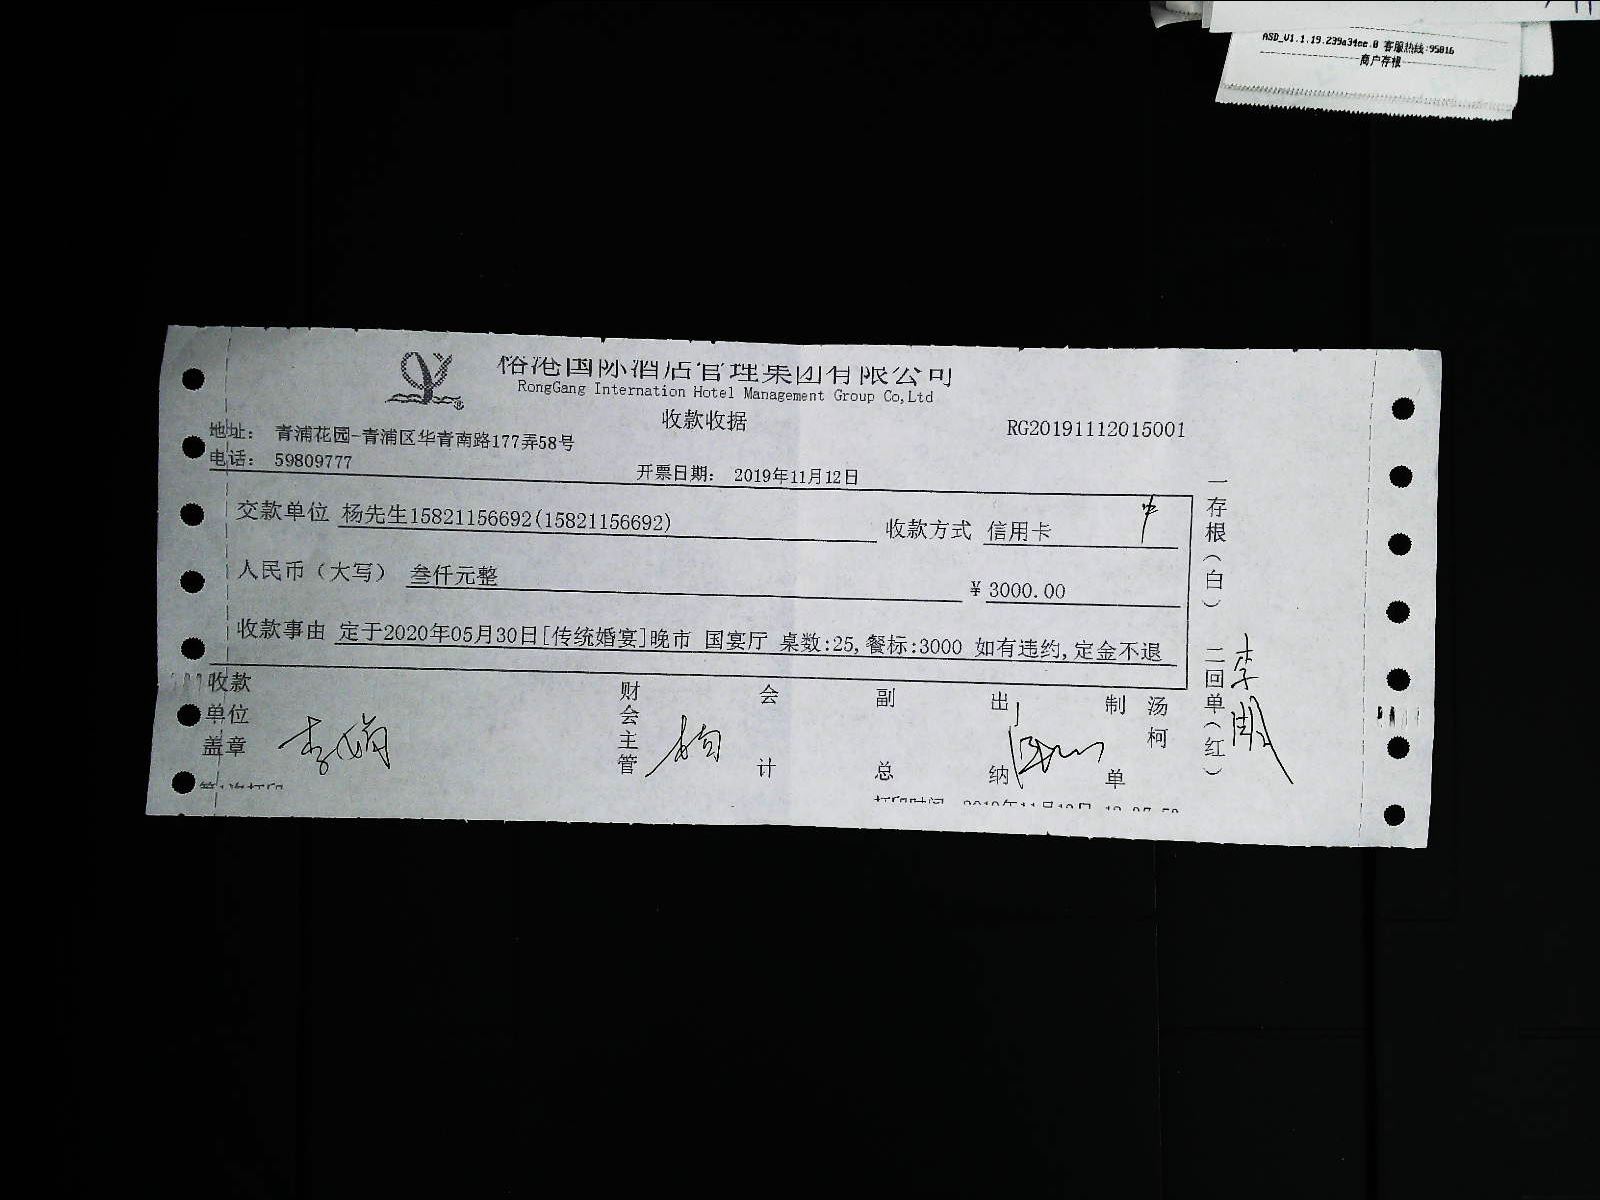 ASD_V1.1.19.239a34ee.0 客服热线:95016
商户存根
榕港国际酒店管理集团有限公司
RongGang Internation Hotel Management Group Co,Ltd
收款收据
RG20191112015001
地址: 青浦花园-青浦区华青南路177弄58号
电话: 59809777
开票日期: 2019年11月12日
交款单位 杨先生15821156692(15821156692) 收款方式 信用卡
人民币(大写) 叁仟元整 ¥ 3000.00
收款事由 定于2020年05月30日[传统婚宴]晚市 国宴厅 桌数:25,餐标:3000 如有违约,定金不退
收款单位盖章
财会主管
会计
副总
出纳
制单 汤柯
一存根(白) 二回单(红)